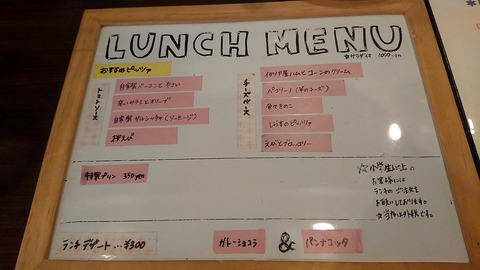 LUNCH MENU
★サラダ付き 1000yen
おすすめピッツァ
トマトソース
自家製ベーコンとやさい
辛いサラミとオリーブ
自家製サルシッチャ(ソーセージ)
桜えび
チーズベース
イタリア産ハムとコーンのクリーム
ペコリーノ(羊のチーズ)
しらすのピッツァ
えびとブロッコリー
特製プリン 350yen
☆小学生以上の
お客様には
ランチのご注文を
お願いしております。
ランチデザート…¥300
ガトーショコラ & パンナコッタ